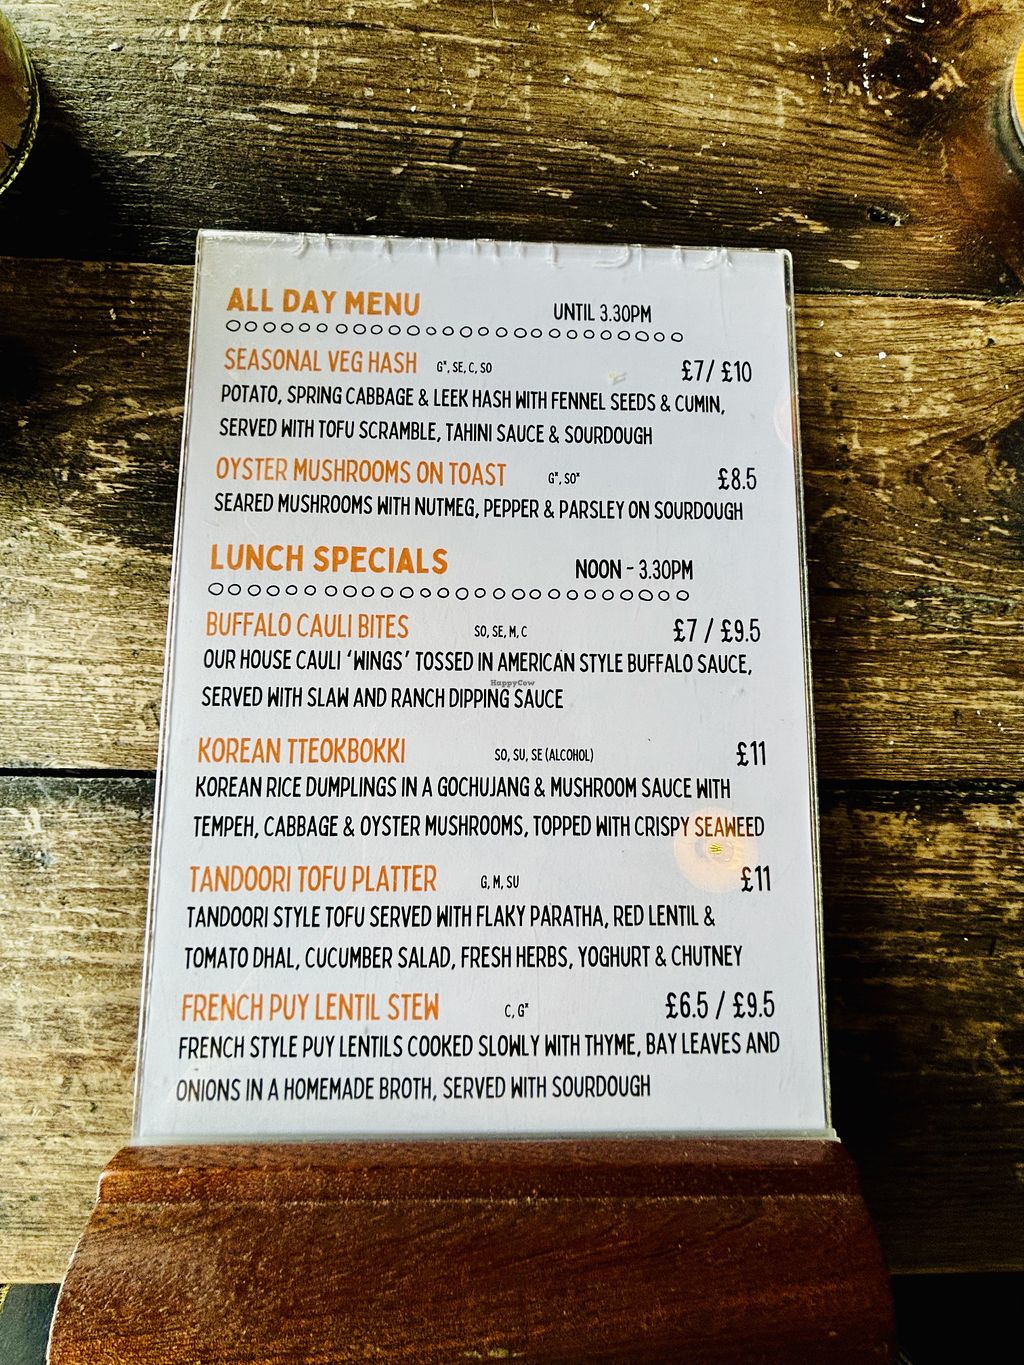 ALL DAY MENU UNTIL 3.30PM
SEASONAL VEG HASH G*, SE, C, SO £7/ £10
POTATO, SPRING CABBAGE & LEEK HASH WITH FENNEL SEEDS & CUMIN,
SERVED WITH TOFU SCRAMBLE, TAHINI SAUCE & SOURDOUGH
OYSTER MUSHROOMS ON TOAST G*, SO* £8.5
SEARED MUSHROOMS WITH NUTMEG, PEPPER & PARSLEY ON SOURDOUGH
LUNCH SPECIALS NOON - 3.30PM
BUFFALO CAULI BITES SO, SE, M, C £7 / £9.5
OUR HOUSE CAULI 'WINGS' TOSSED IN AMERICAN STYLE BUFFALO SAUCE,
HappyCow
SERVED WITH SLAW AND RANCH DIPPING SAUCE
KOREAN TTEOKBOKKI SO, SU, SE (ALCOHOL) £11
KOREAN RICE DUMPLINGS IN A GOCHUJANG & MUSHROOM SAUCE WITH
TEMPEH, CABBAGE & OYSTER MUSHROOMS, TOPPED WITH CRISPY SEAWEED
TANDOORI TOFU PLATTER G, M, SU £11
TANDOORI STYLE TOFU SERVED WITH FLAKY PARATHA, RED LENTIL &
TOMATO DHAL, CUCUMBER SALAD, FRESH HERBS, YOGHURT & CHUTNEY
FRENCH PUY LENTIL STEW C, G* £6.5 / £9.5
FRENCH STYLE PUY LENTILS COOKED SLOWLY WITH THYME, BAY LEAVES AND
ONIONS IN A HOMEMADE BROTH, SERVED WITH SOURDOUGH